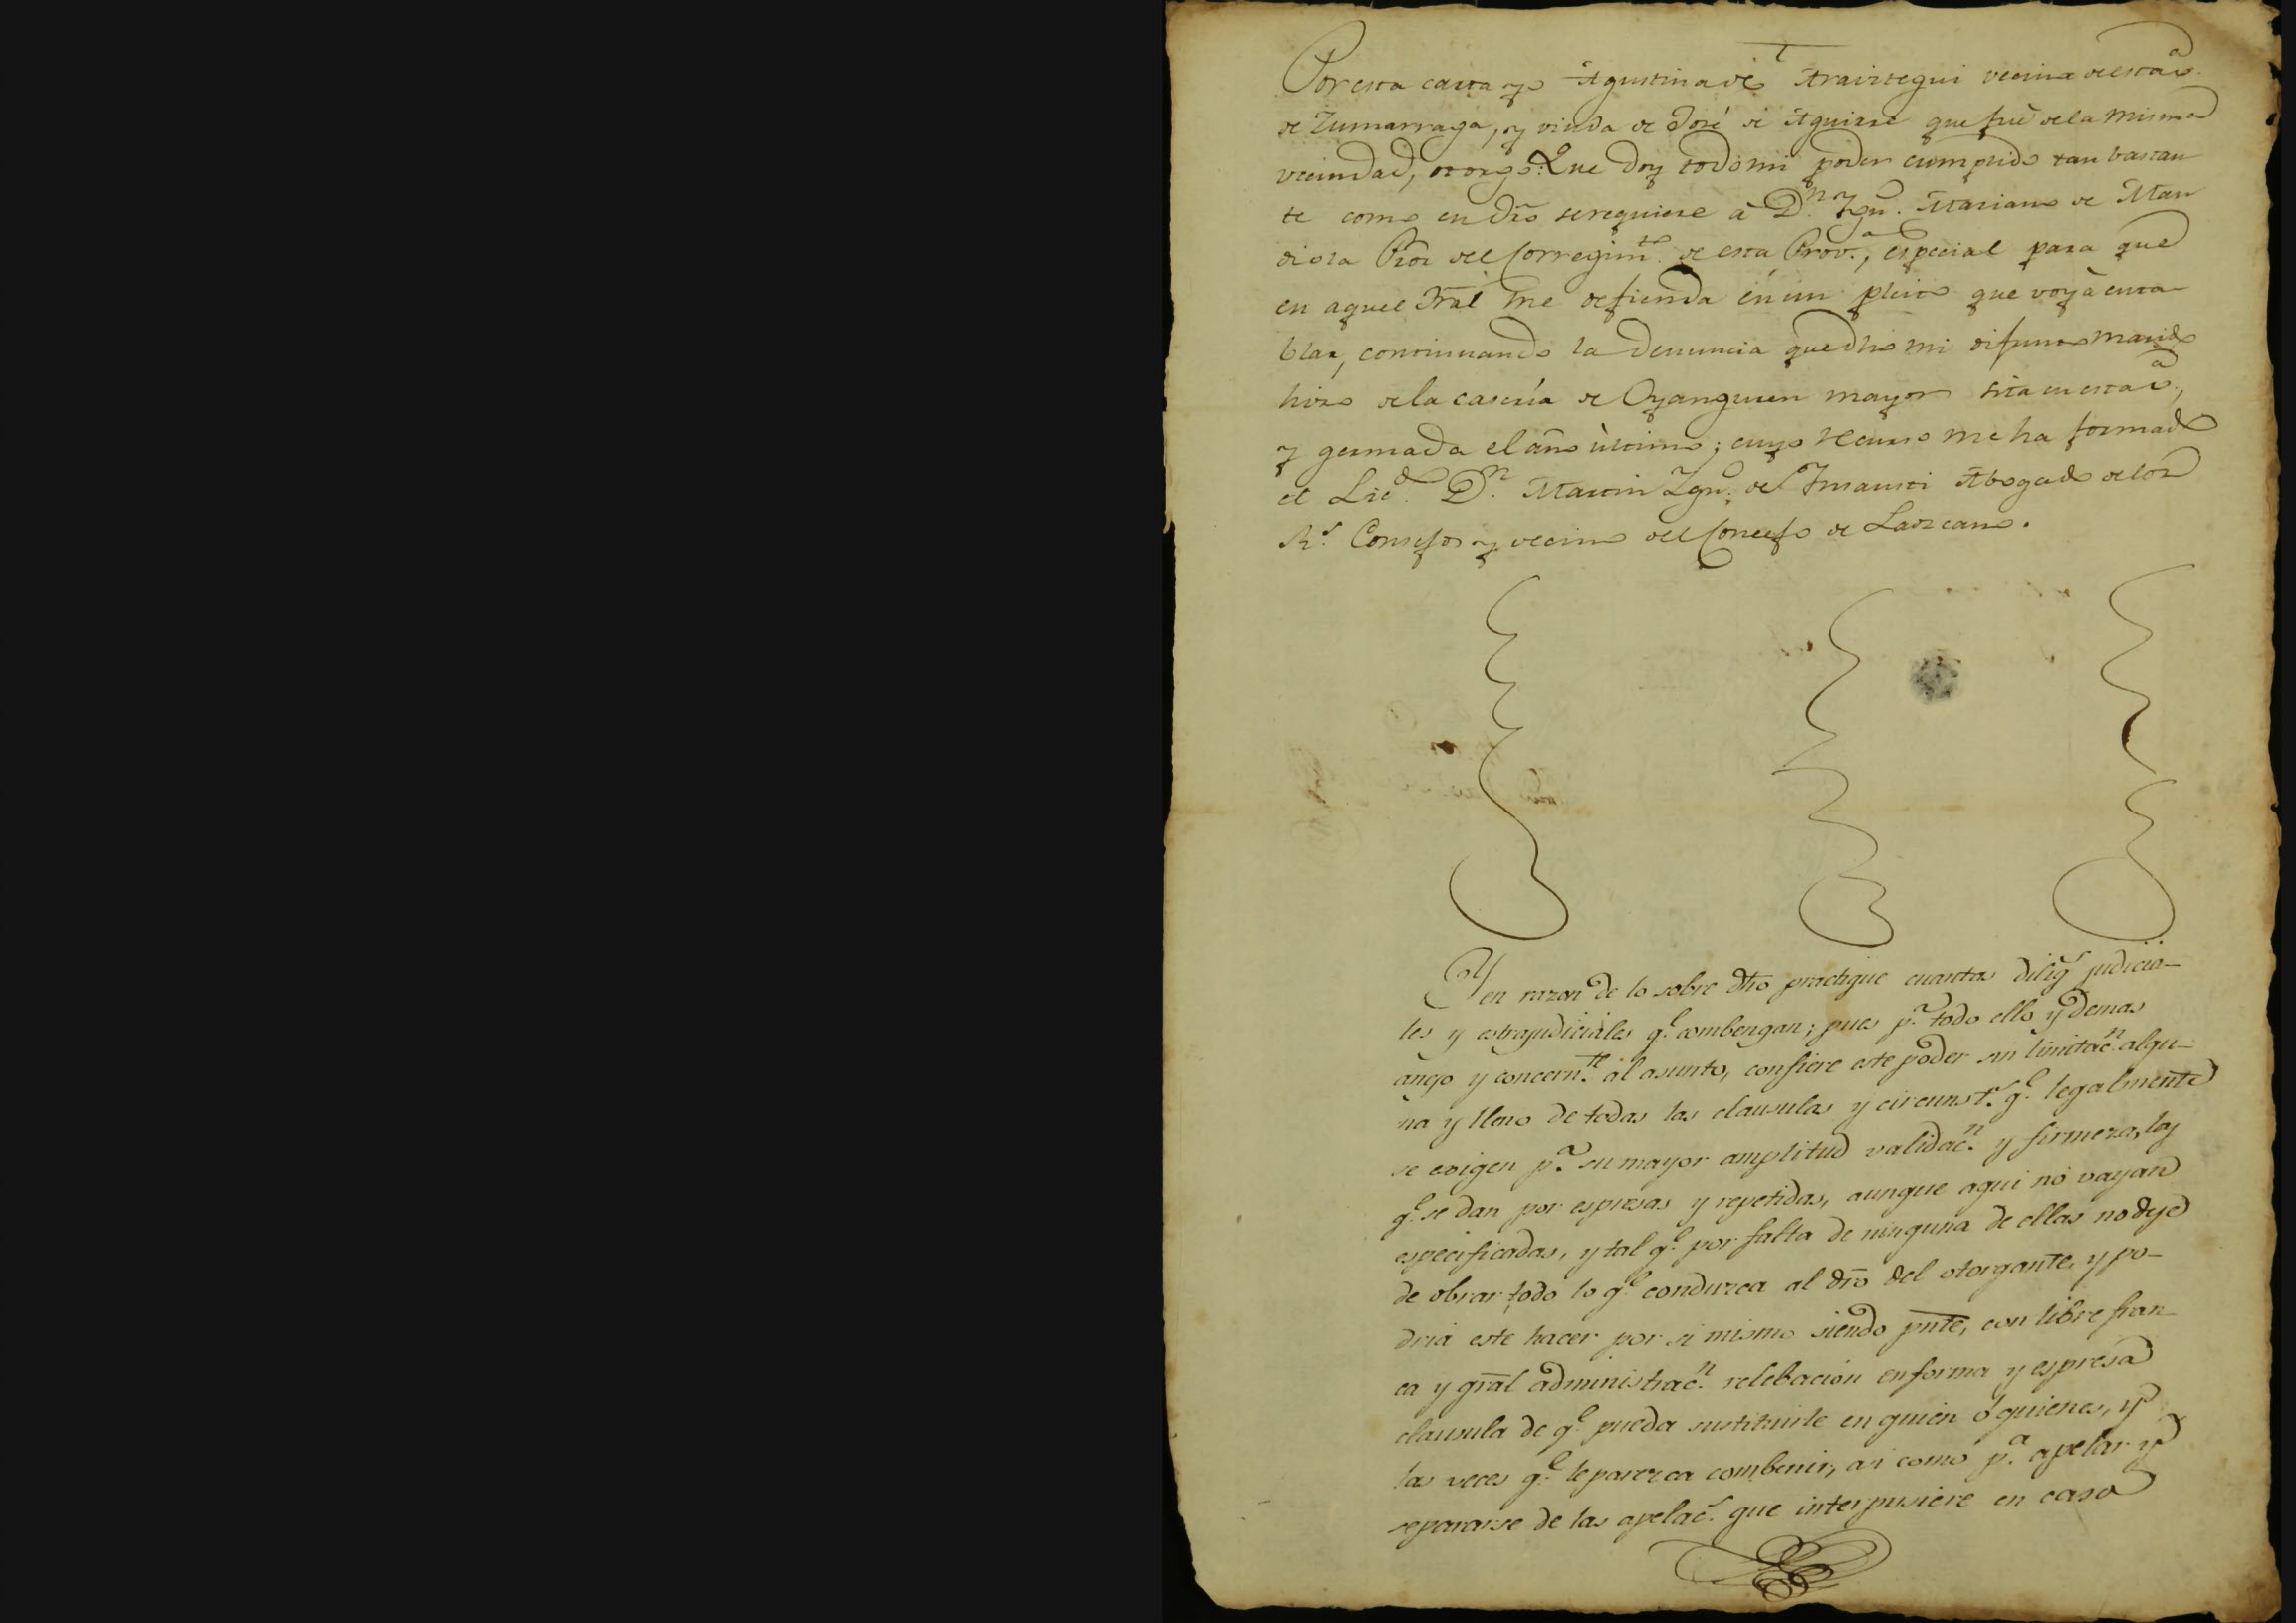 Por esta carta yo Agustina de Araiztegui vecina de esta v.ª
de Zumarraga, y viuda de José de Aguirre que fuè de la misma
vecindad, otorgo: Que doy todo mi poder cumplido tan bastan
te como en dr̃o se requiere à D.n Ygn.º Mariano de Man
diola Pror̃ del Corregim.to de esta Prov.ª, especial para que
en aquel Trãl me defienda en un pleito que voy à enta
blar, continuando la denuncia que dho mi difunto marido
hizo de la casería de Oyanguren mayor sita en esta v.ª,
y quemada el año ùltimo; cuyo recurso me ha formado
el Lic.do D.n Martin Ygn.º de Ynsausti Abogado de los
R.s Consejos y vecino del Concejo de Lazcano.
Y en razon de lo sobre dho practique cuantas dilig.s judicia-
les y estrajudiciales q.e combengan; pues p.a todo ello y demas
anejo y concern.te al asunto, confiere este poder sin limitac.n algu-
na y lleno de todas las clausulas y circunst.s q.e legalmente
se exigen p.a su mayor amplitud validac.n y firmeza, las
q.e se dan por espresas y repetidas, aunque aqui no vayan
especificadas, y tal q.e por falta de ninguna de ellas no deje
de obrar todo lo q.e conduzca al dr̃o del otorgante, y po-
dria este hacer por si mismo siendo pnte, con libre fran-
ca y grãl administrac.n relebacion en forma y espresa
clausula de q.e pueda sustituirle en quien ó quienes, y
las veces q.e le parezca combenir, asi como p.a apelar y
separarse de las apelac.s que interpusiere en caso